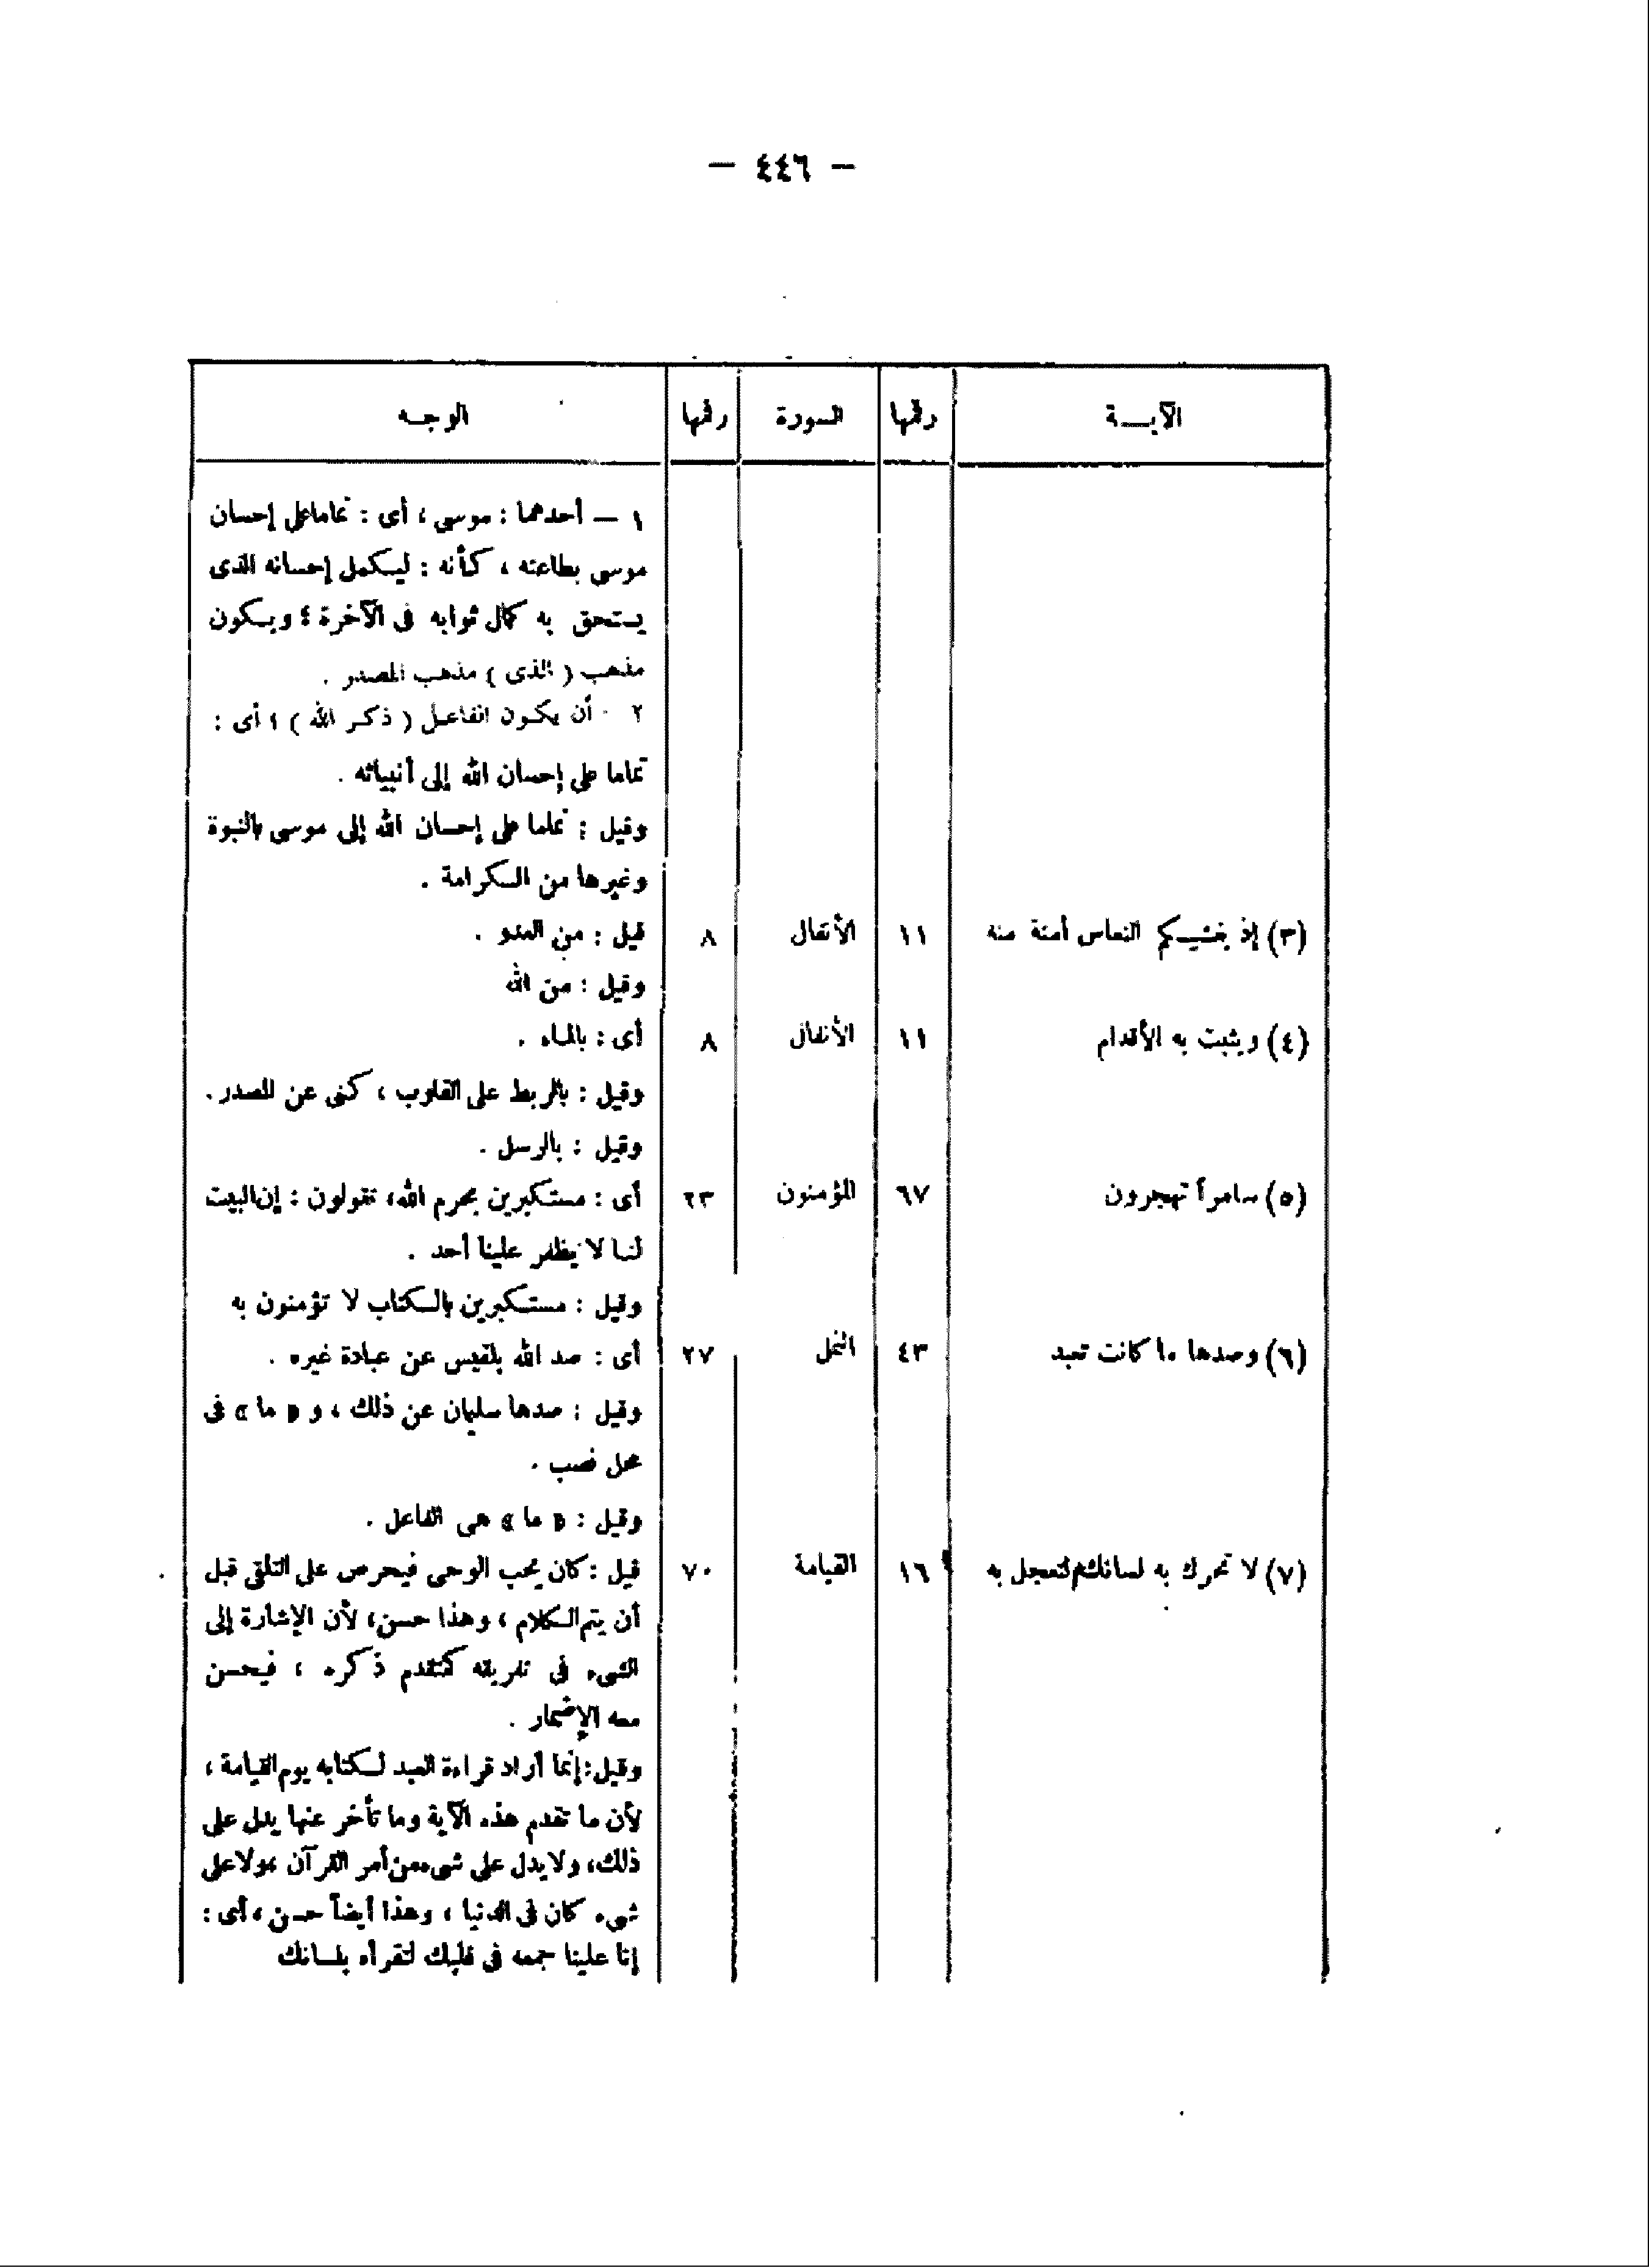 — ٤٤٦ —
الآيـــة رقمها السورة رقمها الوجــه
١ — أحدهما : موسى ، أى : تماما على إحسان
موسى بطاعته ، كأنه : ليكمل إحسانه الذى
يستحق به كمال ثوابه فى الآخرة ؛ ويكون
مذهب ( الذى ) مذهب المصدر .
٢ - أن يكون الفاعل ( ذكر الله ) ؛ أى :
تماما على إحسان الله إلى أنبيائه .
وقيل : تماما على إحسان الله إلى موسى بالنبوة
وغيرها من الكرامة .
(٣) إذ يغشيكم النعاس أمنة منه ١١ الأنفال ٨ قيل : من العدو .
وقيل : من الله
(٤) ويثبت به الأقدام ١١ الأنفال ٨ أى : بالماء .
وقيل : بالربط على القلوب ، كنى عن المصدر .
وقيل : بالرسل .
(٥) سامراً تهجرون ٦٧ المؤمنون ٢٣ أى : مستكبرين بحرم الله، تقولون : إن البيت
لنا لا يظهر علينا أحد .
وقيل : مستكبرين بالكتاب لا تؤمنون به
(٦) وصدها ما كانت تعبد ٤٣ النمل ٢٧ أى : صد الله بلقيس عن عبادة غيره .
وقيل : صدها سليمان عن ذلك ، و « ما » فى
محل نصب .
وقيل : « ما » هى الفاعل .
(٧) لا تحرك به لسانك لتعجل به ١٦ القيامة ٧٠ قيل : كان يحب الوحى فيحرص على التلقى قبل
أن يتم الكلام ، وهذا حسن، لأن الإشارة إلى
الشىء فى تفريقه كتقدم ذكره ، فيحسن
معه الإضمار .
وقيل : إنما أراد قراءة العبد لكتابه يوم القيامة ،
لأن ما تقدم هذه الآية وما تأخر عنها يدل على
ذلك، ولا يدل على شىء من أمر القرآن ، ولا على
شىء كان فى الدنيا ، وهذا أيضاً حسن ، أى :
إنا علينا جمعه فى قلبك لتقرأه بلسانك